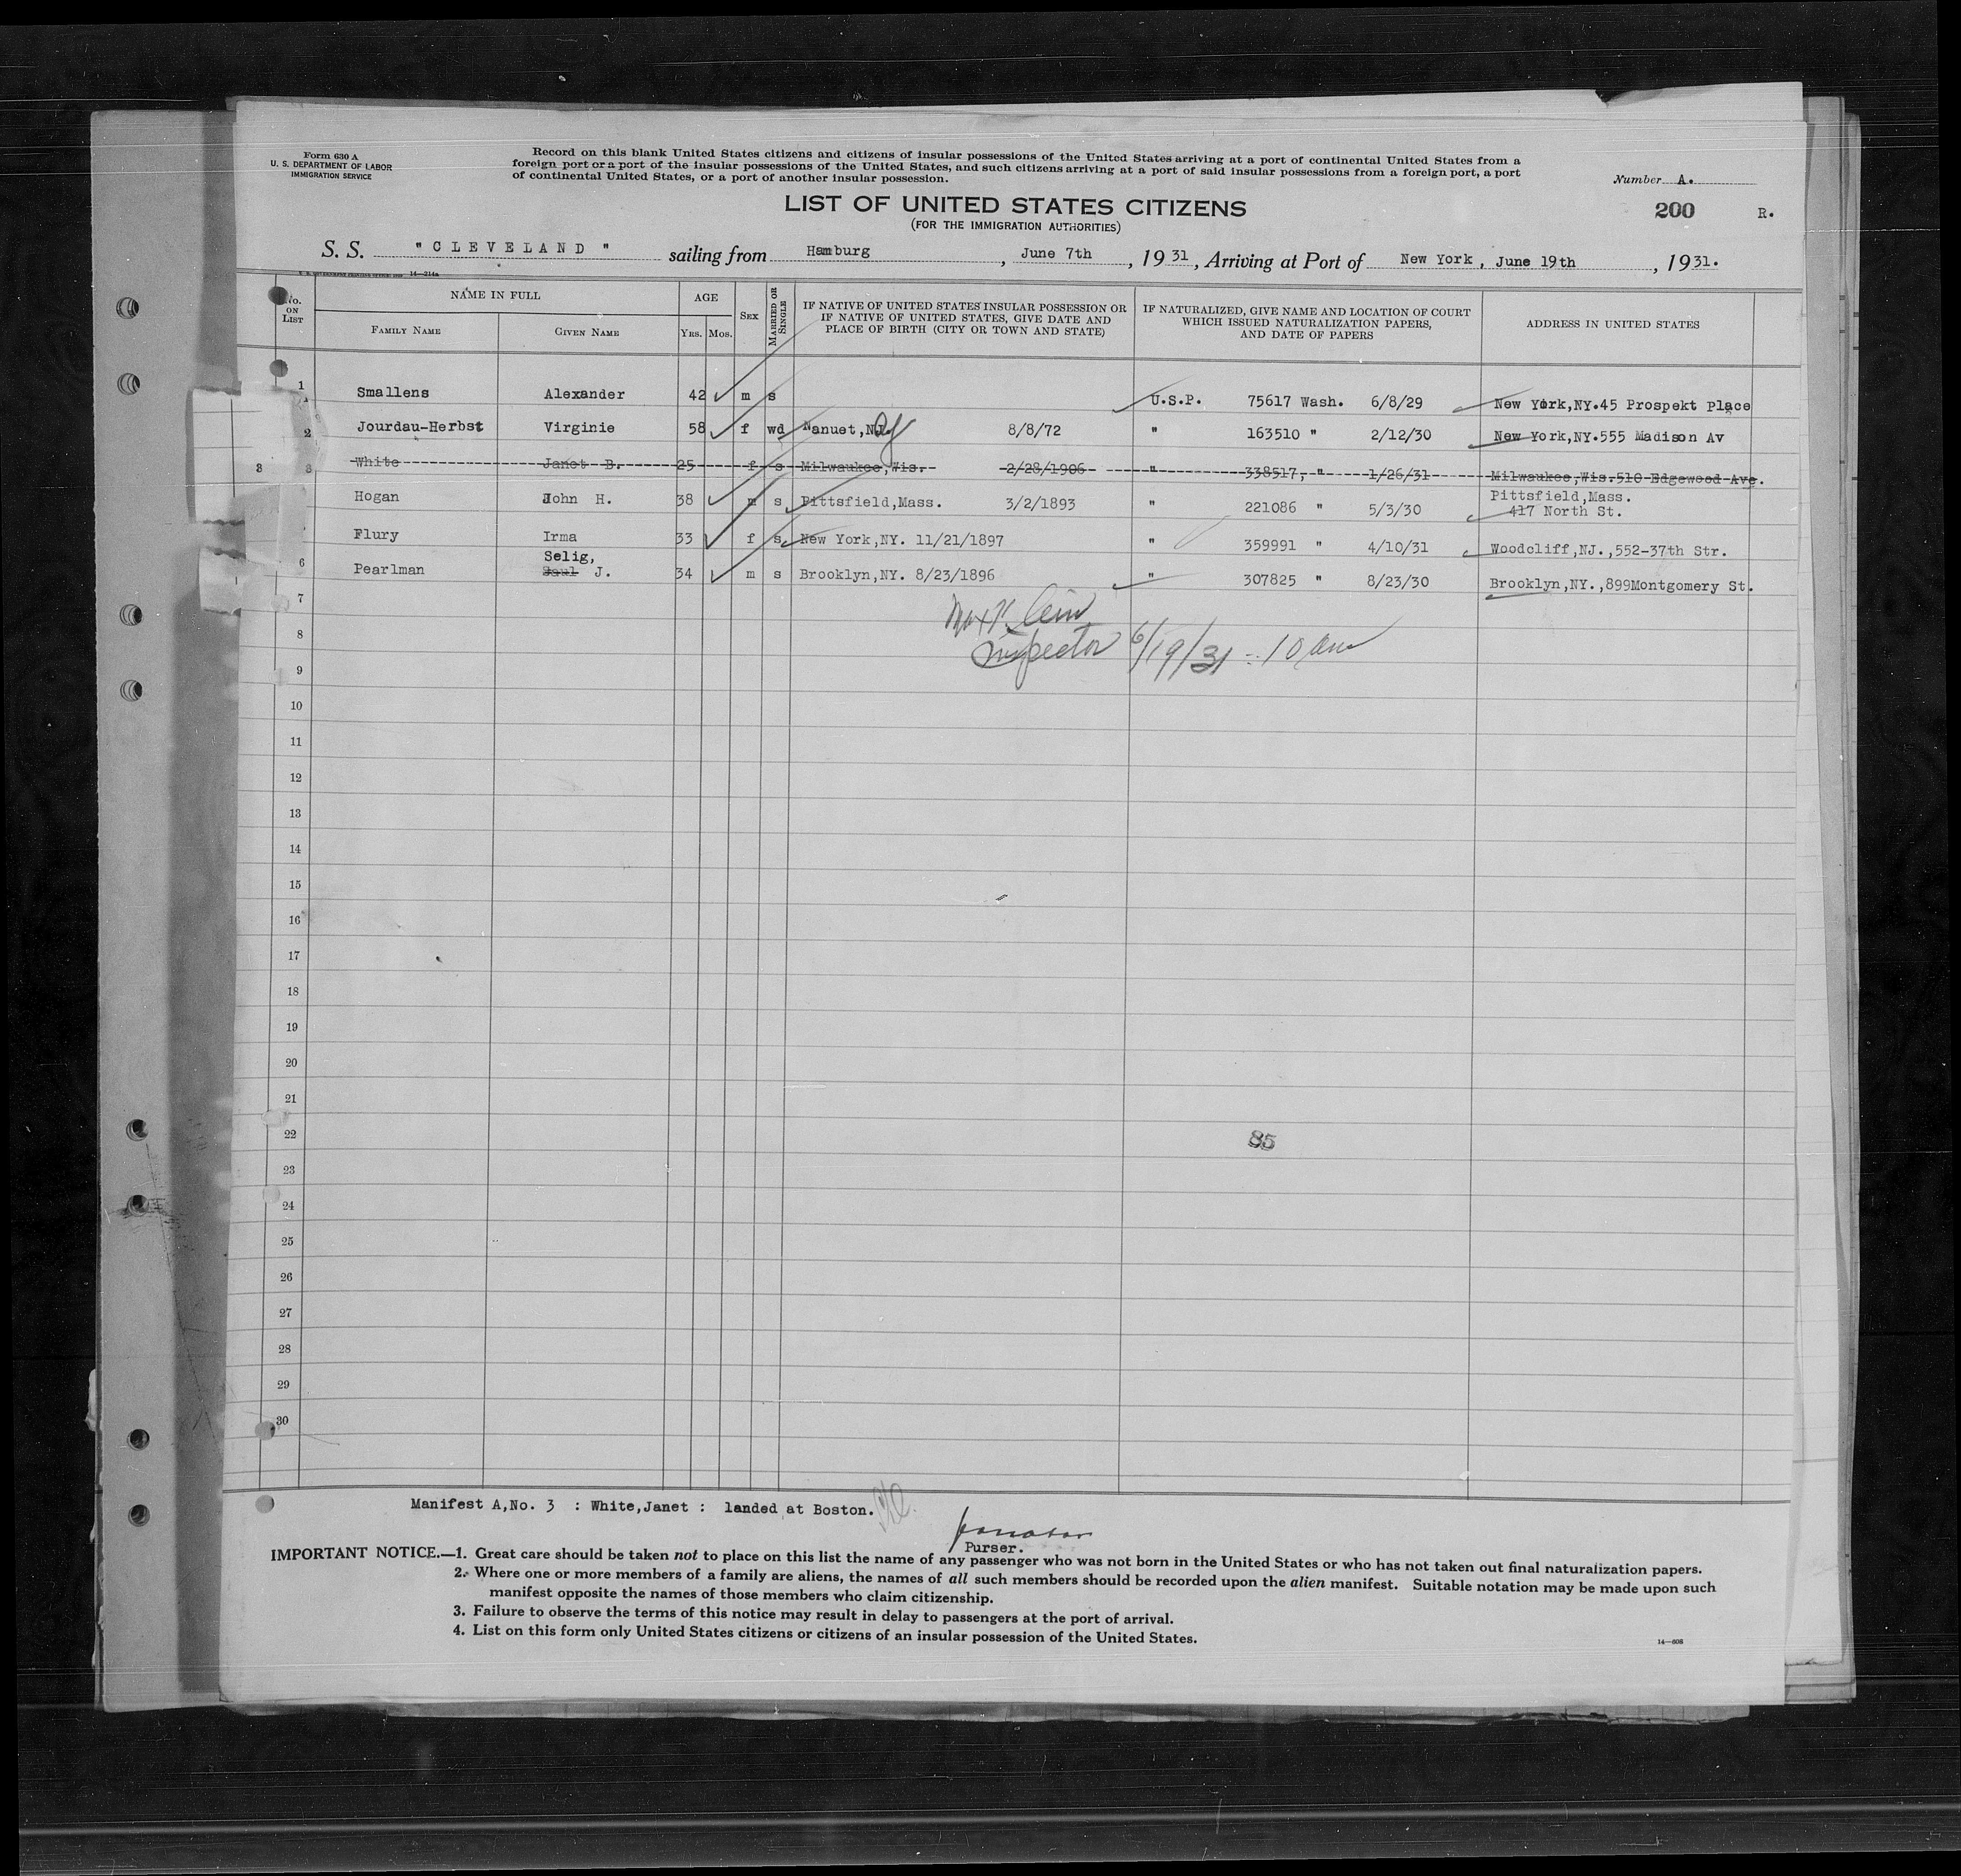 Form 630 A
U. S. DEPARTMENT OF LABOR
IMMIGRATION SERVICE
Record on this blank United States citizens and citizens of insular possessions of the United States arriving at a port of continental United States from a
foreign port or a port of the insular possessions of the United States, and such citizens arriving at a port of said insular possessions from a foreign port, a port
of continental United States, or a port of another insular possession.
Number A.
LIST OF UNITED STATES CITIZENS
(FOR THE IMMIGRATION AUTHORITIES)
200 R.
S. S. "CLEVELAND" sailing from Hamburg, June 7th, 1931, Arriving at Port of New York, June 19th, 1931.
14—214a
No. ON LIST
NAME IN FULL
FAMILY NAME
GIVEN NAME
AGE
YRS. MOS.
SEX
MARRIED OR SINGLE
IF NATIVE OF UNITED STATES INSULAR POSSESSION OR
IF NATIVE OF UNITED STATES, GIVE DATE AND
PLACE OF BIRTH (CITY OR TOWN AND STATE)
IF NATURALIZED, GIVE NAME AND LOCATION OF COURT
WHICH ISSUED NATURALIZATION PAPERS,
AND DATE OF PAPERS
ADDRESS IN UNITED STATES
1 Smallens Alexander 42 m s U.S.P. 75617 Wash. 6/8/29 New York,NY.45 Prospekt Place
2 Jourdau-Herbst Virginie 58 f wd Nanuet, 8/8/72 " 163510 " 2/12/30 New York,NY.555 Madison Av
3 3 White Janet B. 25 f s Milwaukee,Wis. 2/28/1906 " 338517, " 1/26/31 Milwaukee,Wis.510 Edgewood Ave.
Hogan John H. 38 m s Pittsfield,Mass. 3/2/1893 " 221086 " 5/3/30 Pittsfield,Mass.
417 North St.
Flury Irma 33 f s New York,NY. 11/21/1897 " 359991 " 4/10/31 Woodcliff,NJ.,552-37th Str.
Selig,
6 Pearlman Saul J. 34 m s Brooklyn,NY. 8/23/1896 " 307825 " 8/23/30 Brooklyn,NY.,899Montgomery St.
7
8
Inspector 6/19/31 - 10 am
9
10
11
12
13
14
15
16
17
18
19
20
21
22 85
23
24
25
26
27
28
29
30
Manifest A,No. 3 : White,Janet : landed at Boston.
Purser.
IMPORTANT NOTICE.—1. Great care should be taken not to place on this list the name of any passenger who was not born in the United States or who has not taken out final naturalization papers.
2. Where one or more members of a family are aliens, the names of all such members should be recorded upon the alien manifest. Suitable notation may be made upon such
manifest opposite the names of those members who claim citizenship.
3. Failure to observe the terms of this notice may result in delay to passengers at the port of arrival.
4. List on this form only United States citizens or citizens of an insular possession of the United States.
14—608